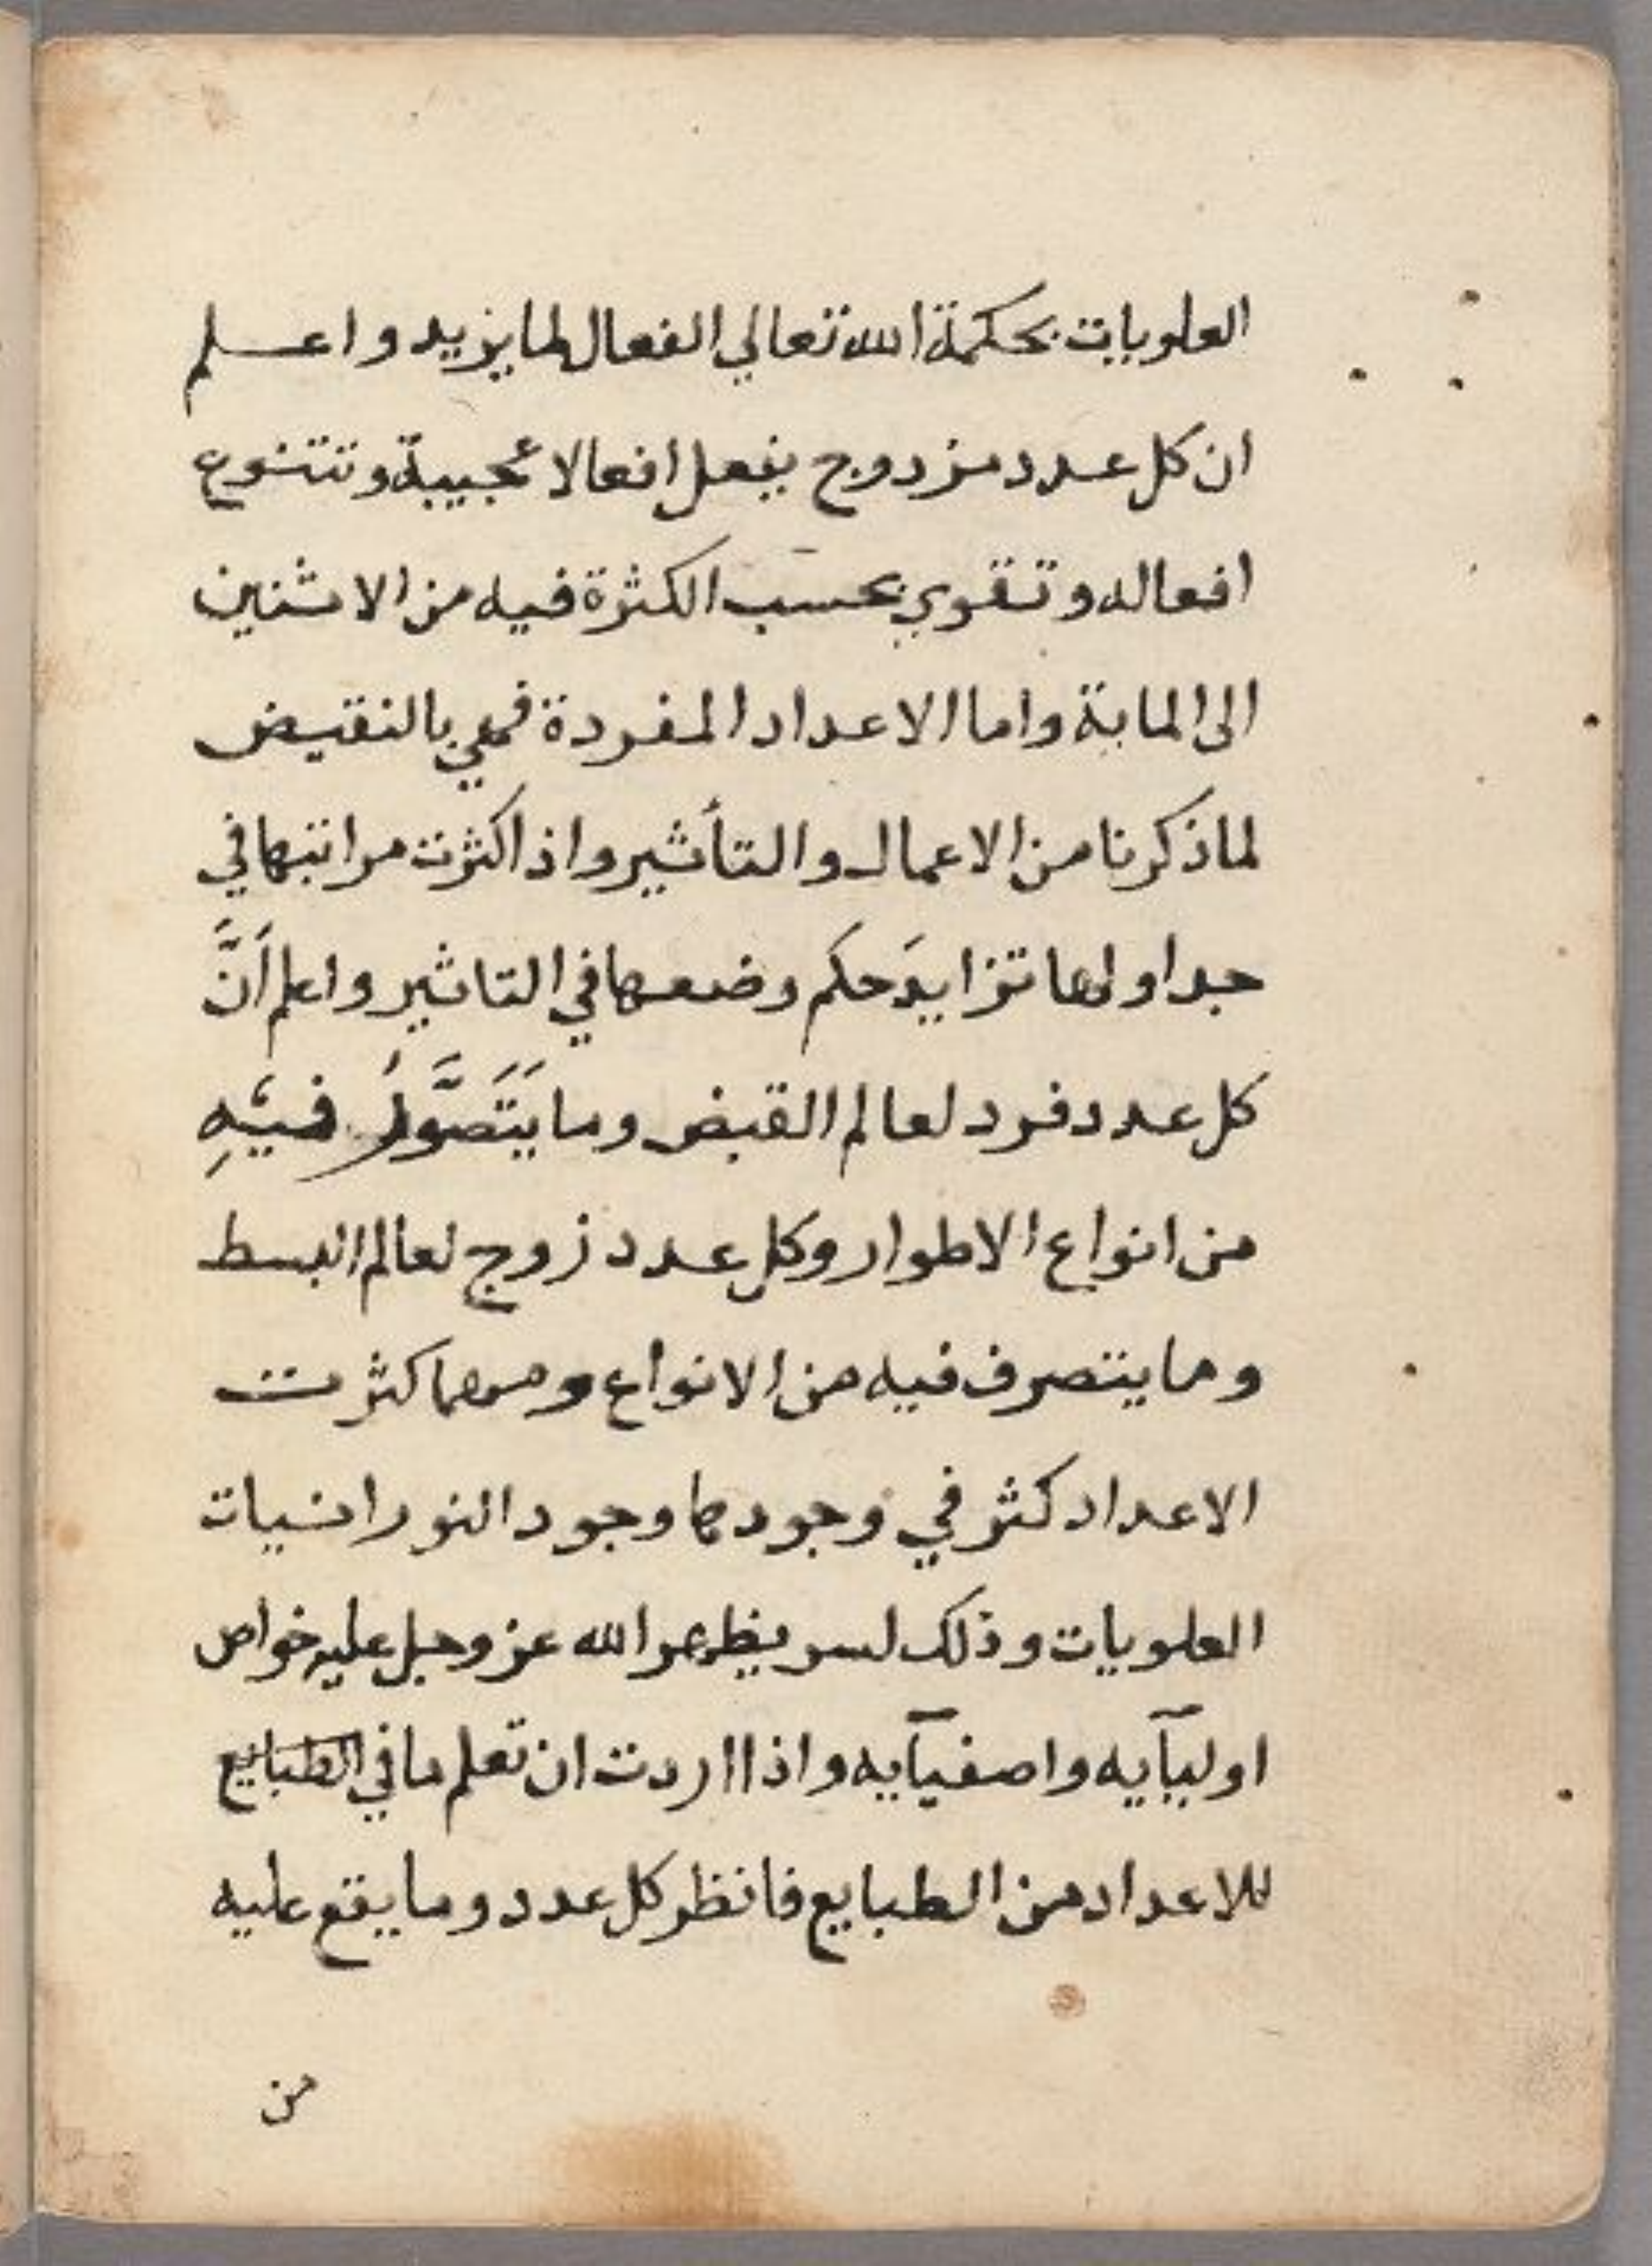 العلويات بحكمة الله تعالي الفعال لما يزيد واعلم
ان كل عدد مزدوج يفعل افعالا عجيبة وتتنوع
افعاله وتقوي بحسب الكثرة فيه من الاثنين
الى الماية واما الاعداد المفردة فهي بالنقيض
لماذكرنا من الاعمال والتأثير واذا كثرت مراتبها في
جداولها تزايدَ حكم وضعها في التاثير واعلم اَنَّ
كل عدد فرد لعالم القبض وما يَتَصَّوَرُ فيَهِ
من انواع الاطوار وكل عدد زوج لعالم البسط
وما يتصرف فيه من الانواع ومهما كثرت
الاعداد كثر في وجودها وجود النورانيات
العلويات وذلك لسر يظهره الله عز وجل عليه خواص
اوليآيه واصفيآيه واذا اردت ان تعلم ما في الطبايع
للاعداد من الطبايع فانظر كل عدد وما يقع عليه
من